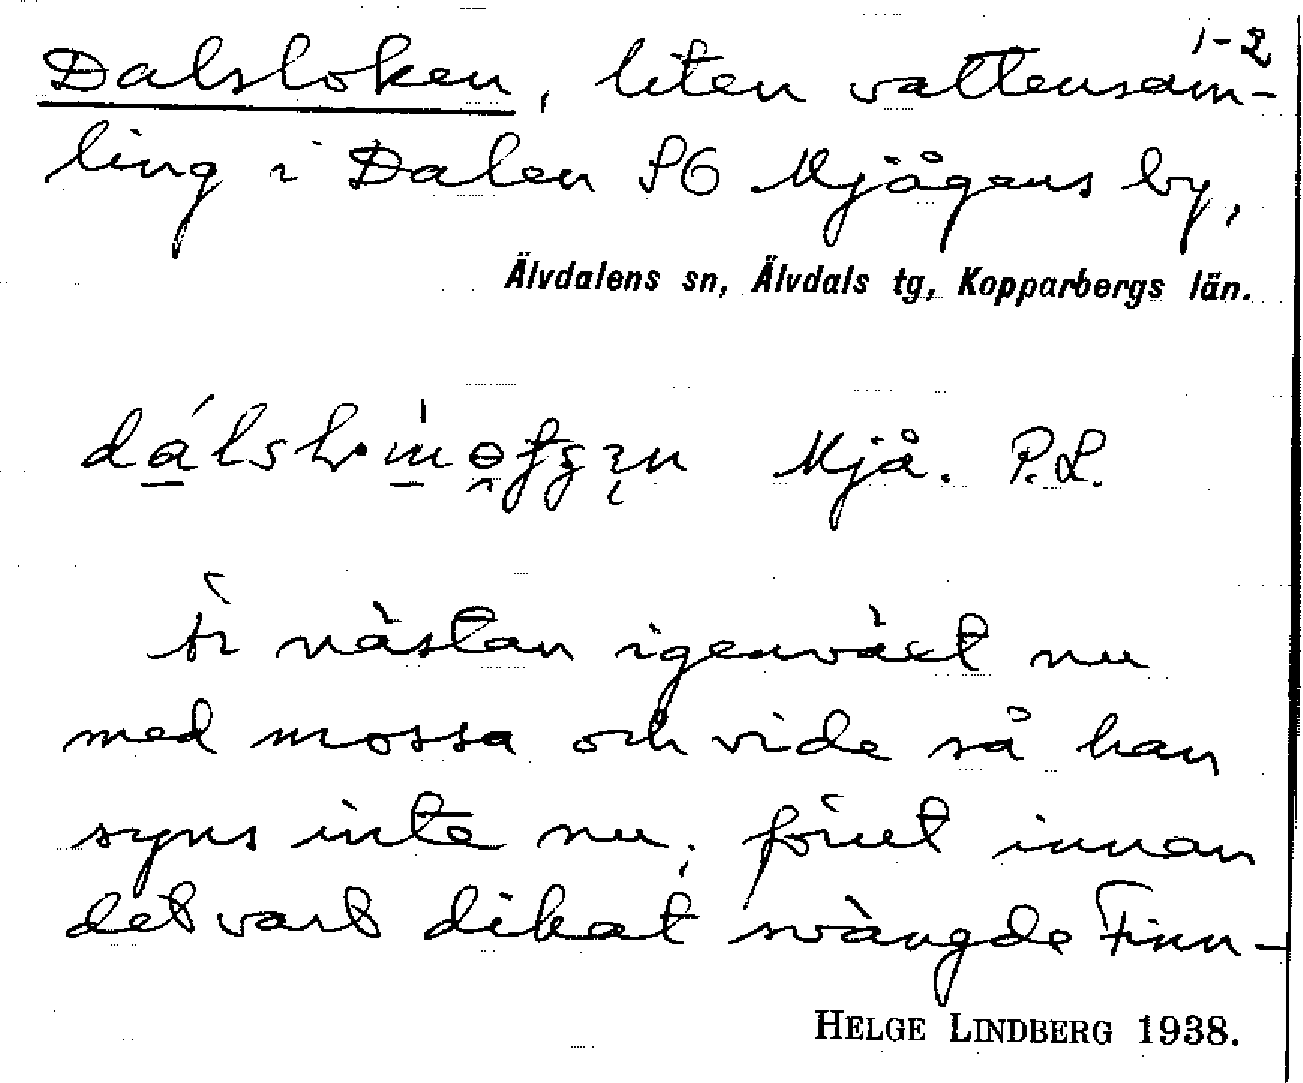 1-2
Dalsloken, liten vattensam-
ling i Dalen SO Mjågens by,
Älvdalens sn, Älvdals tg, Kopparbergs län.
Mjå. P.L.
Är nästan igenväxt nu
med mossa och vide så han
syns inte nu; förut innan
det vart dikat svängde Finn-
HELGE LINDBERG 1938.